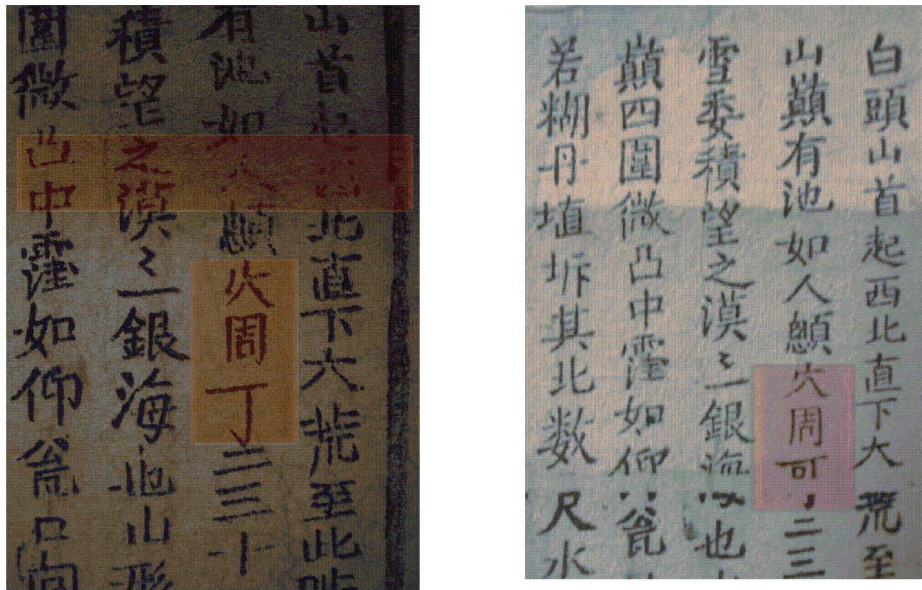 山首起西北直下大荒至此
有池如人顖穴周丁二三十
積望之漠〻一銀海也山形
圍微凸中窪如仰瓮口向
白頭山首起西北直下大荒至
山巔有池如人顖穴周可二三
雪委積望之漠〻一銀海也
巔四圍微凸中窪如仰瓮
若糊丹埴坼其北数尺水